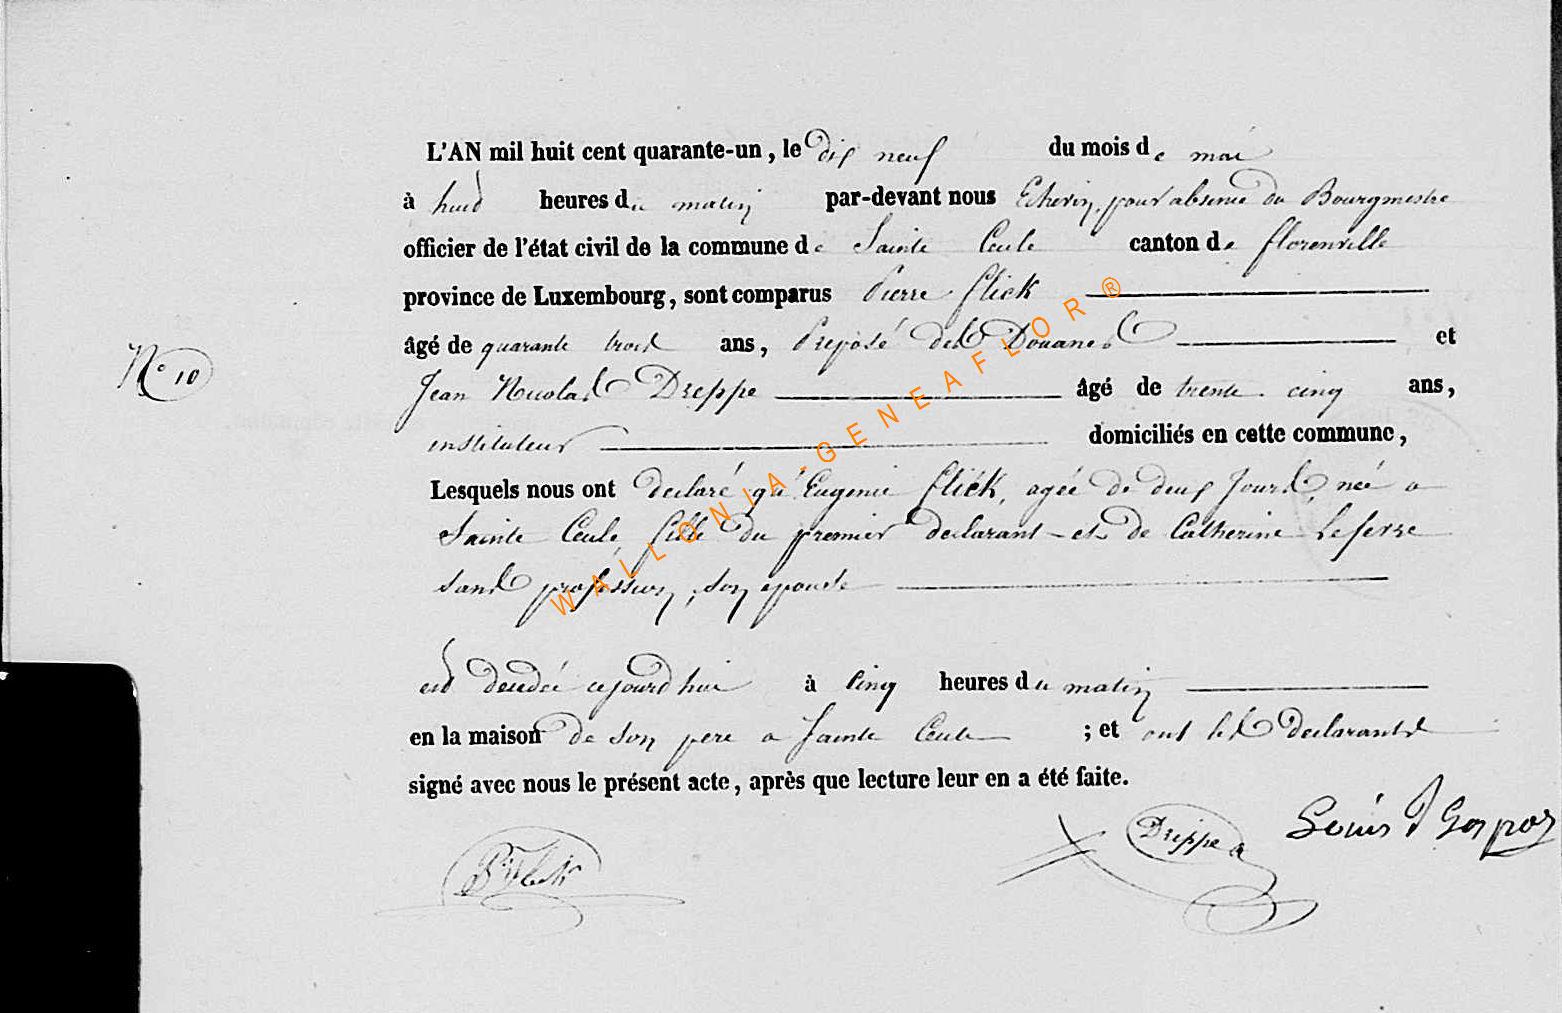 L'AN mil huit cent quarante-un, le dix neuf du mois de mai
à huit heures du matin par-devant nous Echevin, pour absence du Bourgmestre
officier de l'état civil de la commune de Sainte Cecile canton de florenville
province de Luxembourg, sont comparus Pierre flick
âgé de quarante trois ans, Preposé des Douanes et
N° 10
Jean Nicolas Dreppe âgé de trente cinq ans,
instituteur domiciliés en cette commune,
Lesquels nous ont declaré qu'Eugenie flick, agée de deux Jours, née a
Sainte Cecile, fille du premier declarant et de Catherine Lefevre
sans profession, son epouse
est decedée cejourd'hui à cinq heures du matin
en la maison de son pere a Sainte Cecile ; et ont les declarants
signé avec nous le présent acte, après que lecture leur en a été faite.
P. Flick Dreppe Louis J
WALLONIA-GENEAFLOR ®